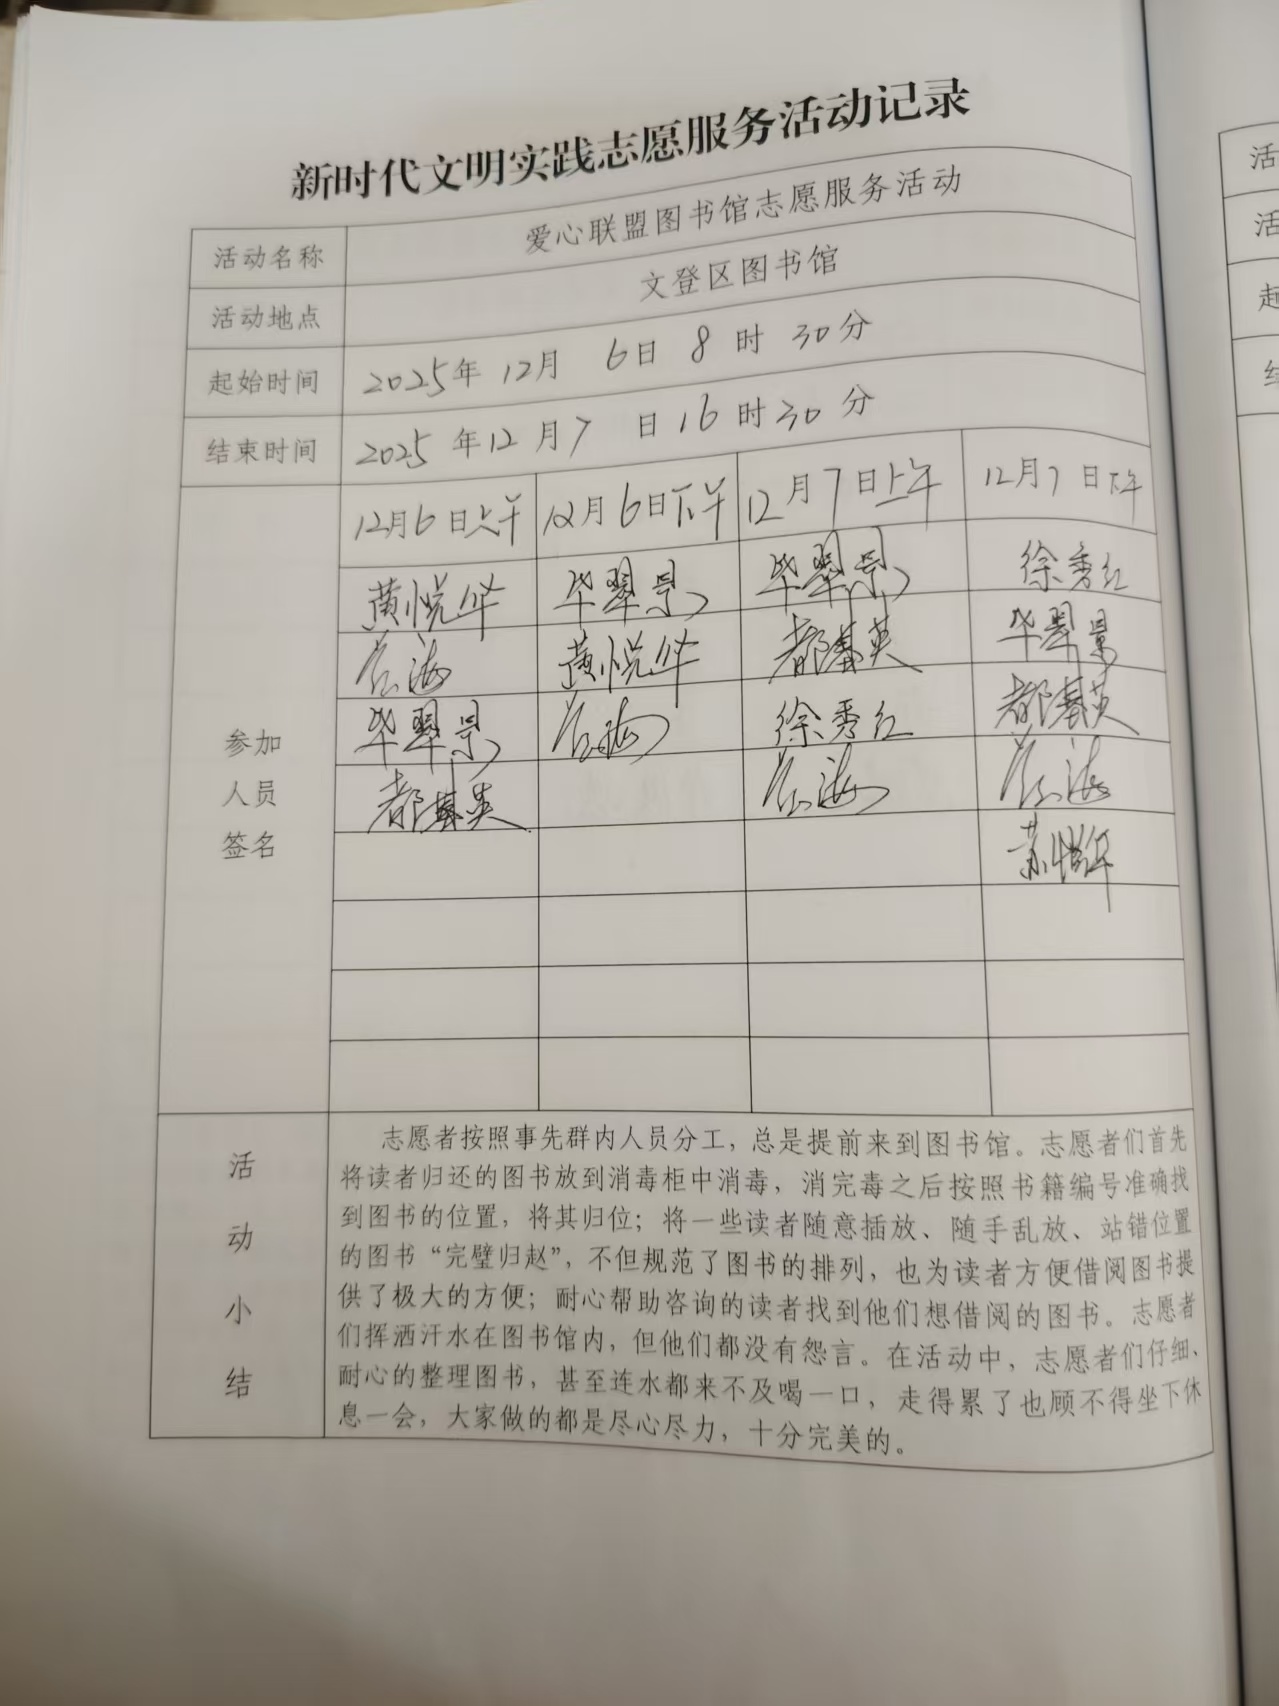 新时代文明实践志愿服务活动记录
活动名称 爱心联盟图书馆志愿服务活动
活动地点 文登区图书馆
起始时间 2025年 12月 6日 8时 30分
结束时间 2025年12月7日16时30分
12月6日上午 12月6日下午 12月7日上午 12月7日下午
黄悦华 毕翠景 毕翠景 徐秀红
毕翠景
黄悦华
毕翠景 徐秀红
参加
人员
签名
活
动
小
结
志愿者按照事先群内人员分工，总是提前来到图书馆。志愿者们首先
将读者归还的图书放到消毒柜中消毒，消完毒之后按照书籍编号准确找
到图书的位置，将其归位；将一些读者随意插放、随手乱放、站错位置
的图书“完璧归赵”，不但规范了图书的排列，也为读者方便借阅图书提
供了极大的方便；耐心帮助咨询的读者找到他们想借阅的图书。志愿者
们挥洒汗水在图书馆内，但他们都没有怨言。在活动中，志愿者们仔细、
耐心的整理图书，甚至连水都来不及喝一口，走得累了也顾不得坐下休
息一会，大家做的都是尽心尽力，十分完美的。